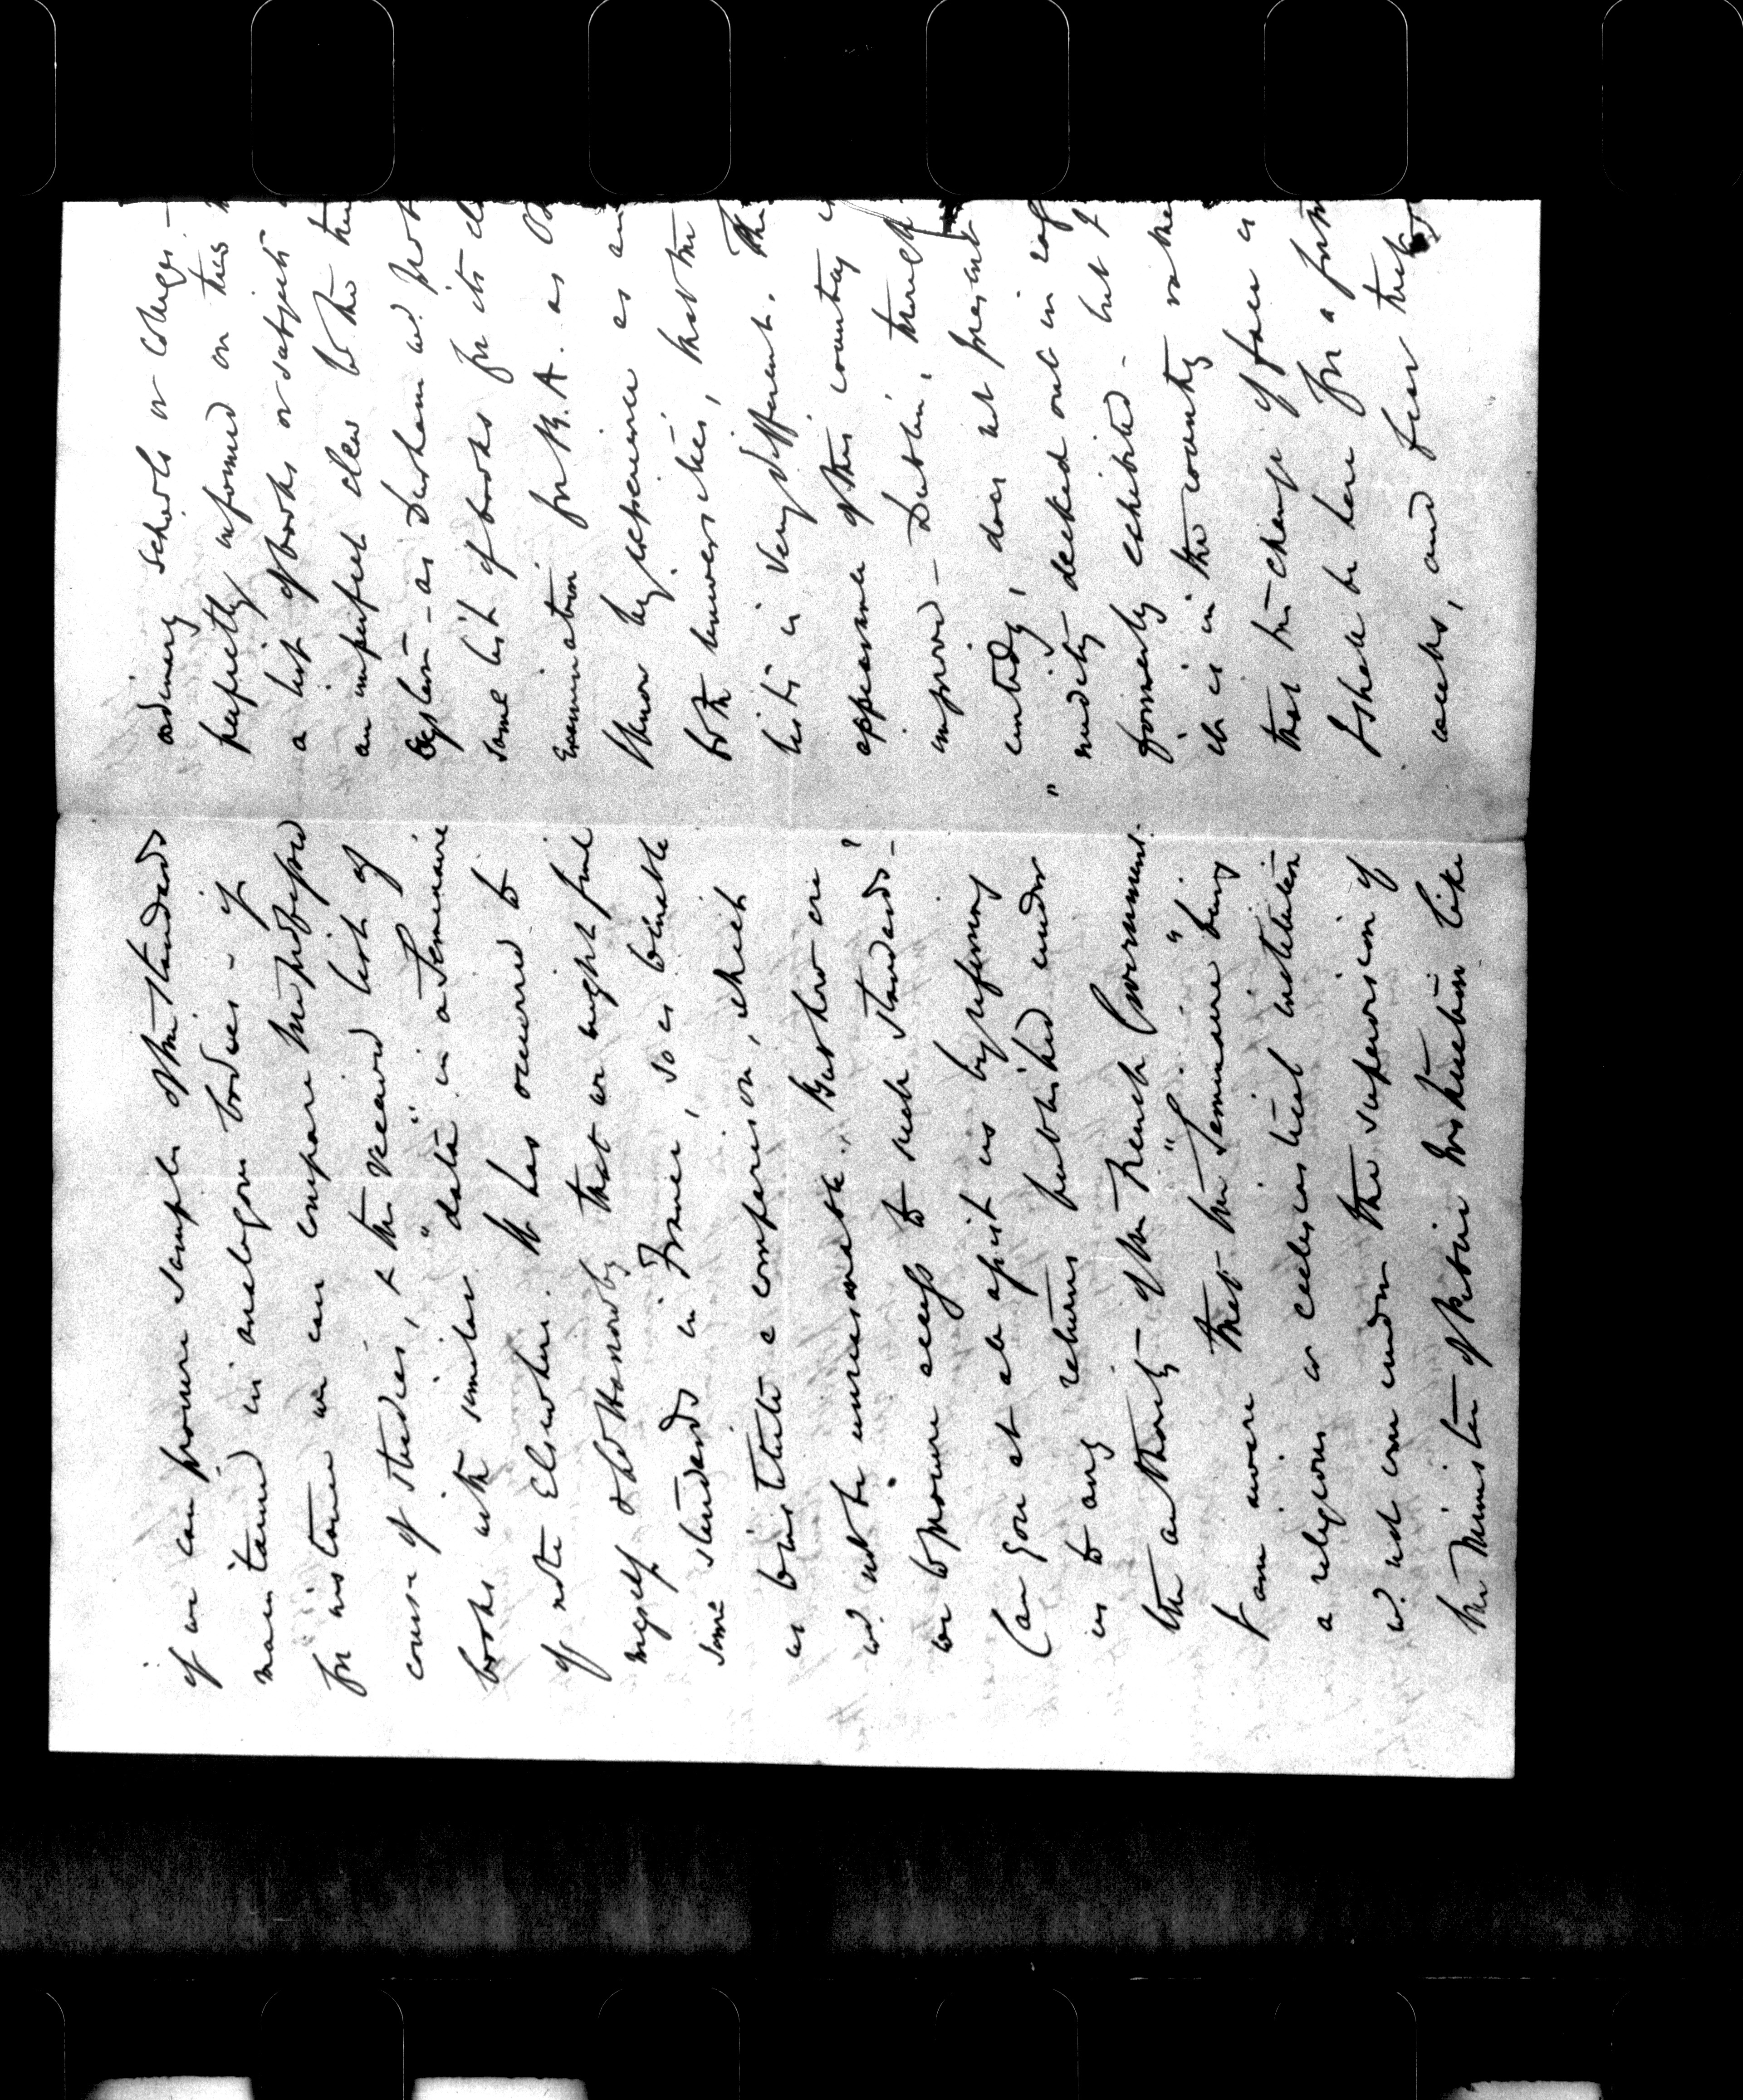 if we can procure samples of the standards
maintained in analogous bodies - if
for instance we can compare the professed
course of studies, & the required list of
books with similar "data" in a Seminaire
of note Elsewhere. It has occurred to
myself that we might find
some standards in France, so as to enable
us to institute a comparison, which
w. not be unreasonable. But how are
we to procure access to such standards?
Can you at all assist us by referring
us to any returns published under
the authority of the French Government.
I am aware that the "Seminaire" being
a religious or ecclesiastical institution
w. not come under the supervision of
the Minister of Public Instruction like
ordinary schools or colleges -
perfectly informed on this
a list of books or subjects
an imperfect clew to the
explain - as Durham w.
some list of books for its
Examination for B.A. as
know by experience as an
both universities, that the
lists is very different. The
appearance of this country
improved - Dublin,
does not present
nudity decked out in
formerly exhibited - but
it is in the country
that the change of face is
I shall be here for a
weeks, and fear that